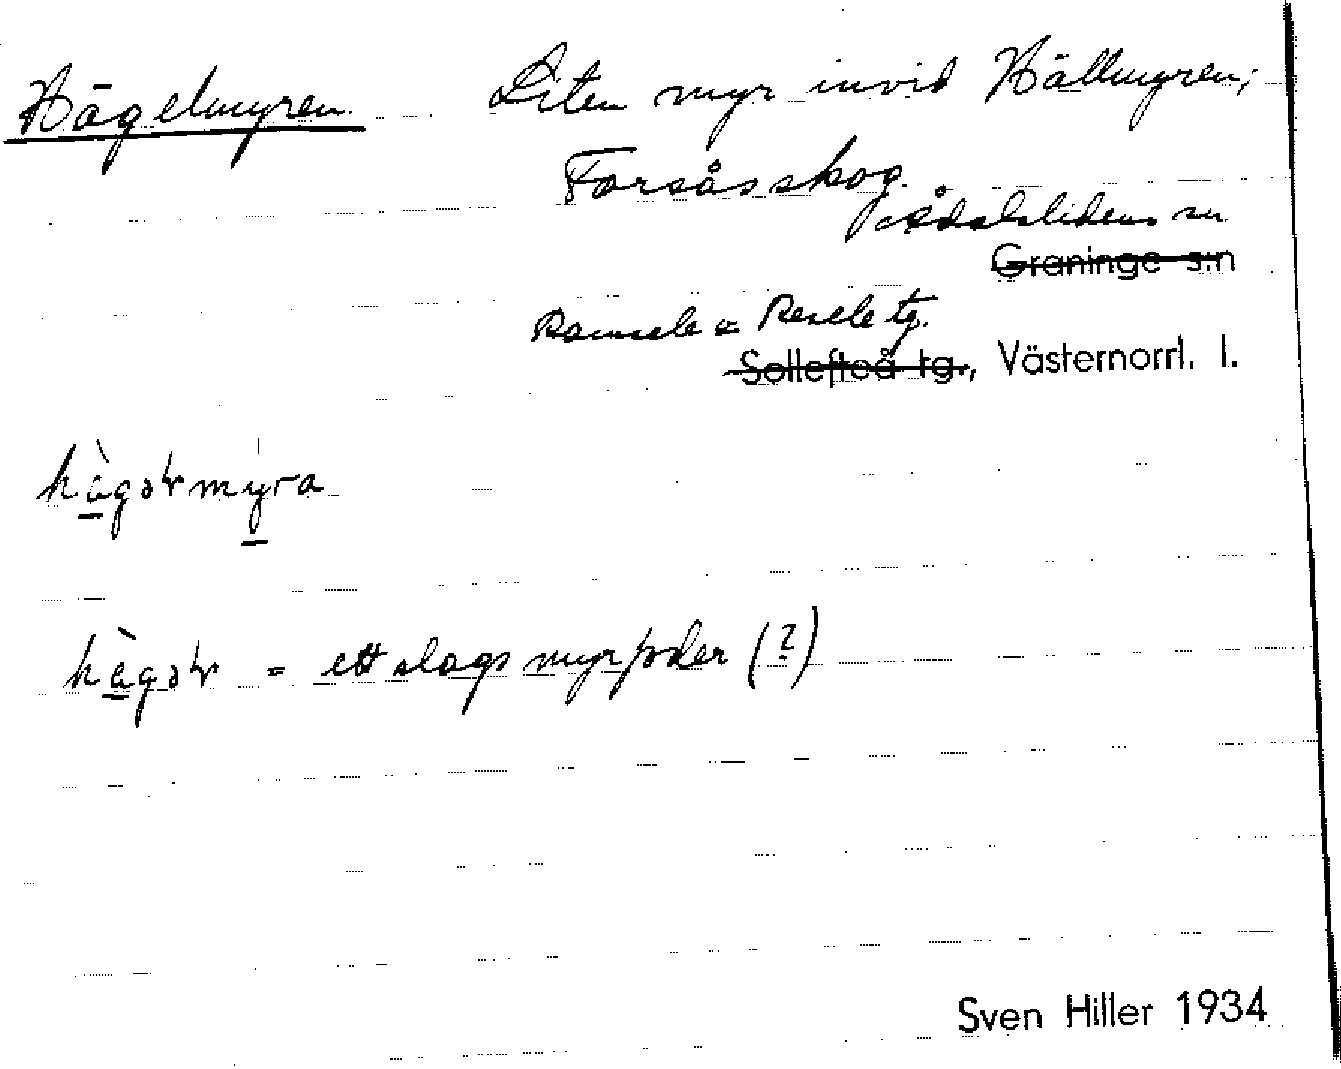 Hägelmyren. Liten myr invid Hällmyren;
Forsås skog.
Ådalslidens sn
Graninge s:n
Ramsele o Resele tg.
Sollefteå tg., Västernorrl. l.
hàgəɫmýra
hàgəɫ = ett slags myrfoder (?)
Sven Hiller 1934